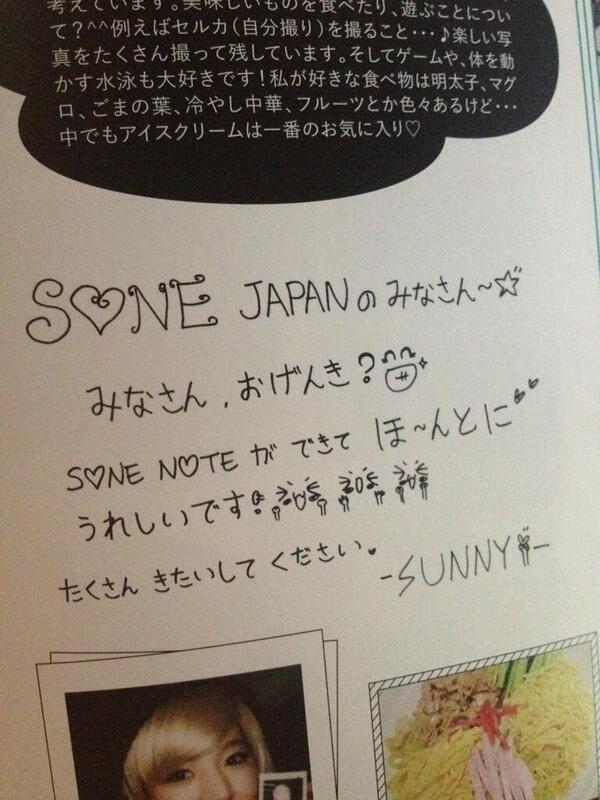 考えています。美味しいものを食べたり、遊ぶことについ
て?^^例えばセルカ(自分撮り)を撮ること・・・♪楽しい写
真をたくさん撮って残しています。そしてゲームや、体を動
かす水泳も大好きです!私が好きな食べ物は明太子、マグ
ロ、ごまの葉、冷やし中華、フルーツとか色々あるけど・・・
中でもアイスクリームは一番のお気に入り♡
S♡NE JAPANの みなさん~☆
みなさん, おげんき?
S♡NE N♡TE が できて ほ~んとに
うれしいです!
たくさん きたいして ください。
-SUNNY-